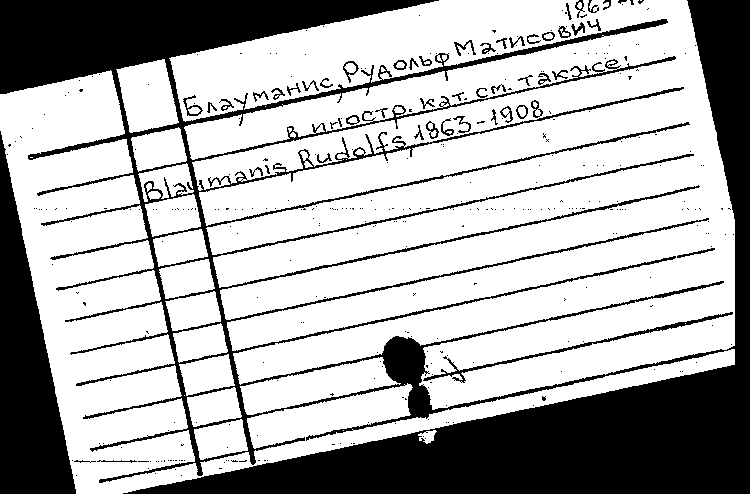 Блауманис, Рудольф Матисович
в иностр. кат. см. также:
Blaumanis, Rudolfs, 1863-1908